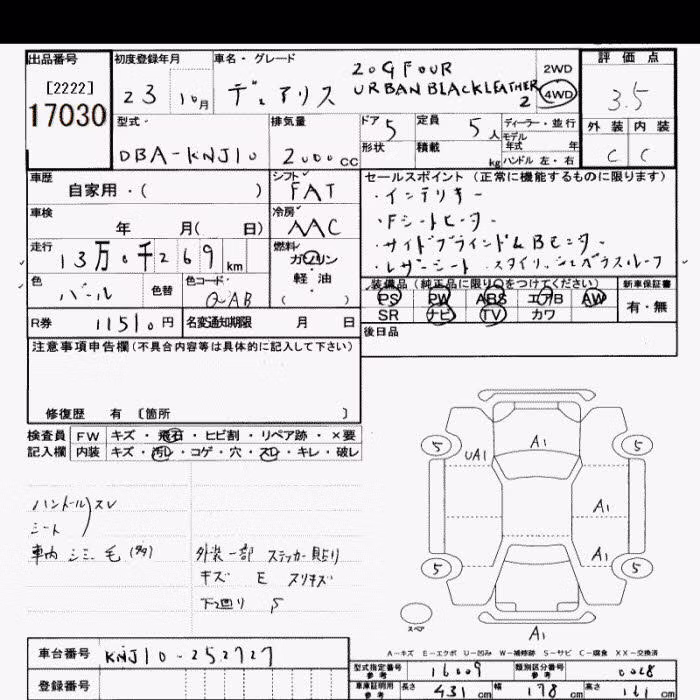 出品番号 初度登録年月 車名・グレード 評価点
[2222] 17030
23 10月 デュアリス 20G FOUR URBAN BLACK LEATHER 2 2WD 4WD 3.5
型式 排気量 ドア 5 定員 5人 ディーラー・並行 外装 内装
モデル年式 年
DBA-KNJ10 2000cc 形状 積載 kg ハンドル 左・右 C C
車歴 シフト FAT セールスポイント(正常に機能するものに限ります)
自家用・( )
・インテリキー
車検 冷房 AAC
・Fシートヒーター
年 月( 日)
・サイドブラインド&Bモニター
走行 燃料 ガソリン
13万0千269km 軽油
・レザーシート・スタイリッシュガラスルーフ
色 色替 色コード ( )
パール QAB
装備品(純正品に限り○をつけてください) 新車保証書
PS PW ABS エアB AW 有・無
SR ナビ TV カワ
R券 11510円 名変通知期限 月 日
後日品
注意事項申告欄(不具合内容等は具体的に記入して下さい)
修復歴 有 〔箇所 〕
検査員 FW キズ・飛石・ヒビ割・リペア跡・×要
記入欄 内装 キズ・汚レ・コゲ・穴・スレ・キレ・破レ
ハンドル スレ
シート
車内 シミ 毛
外装一部 ステッカー貼り
キズ E スリキズ
下廻り S
5 A1 5
UA1
A1
A1
5 5
スペア
A1
A-キズ E-エクボ U-凹み W-補修跡 S-サビ C-腐食 XX-交換済
車台番号 KNJ10-252727
型式指定番号 参考 16009 類別区分番号 参考 0028
登録番号
車庫証明用 参考 長さ 431cm 幅 178cm 高さ 161cm